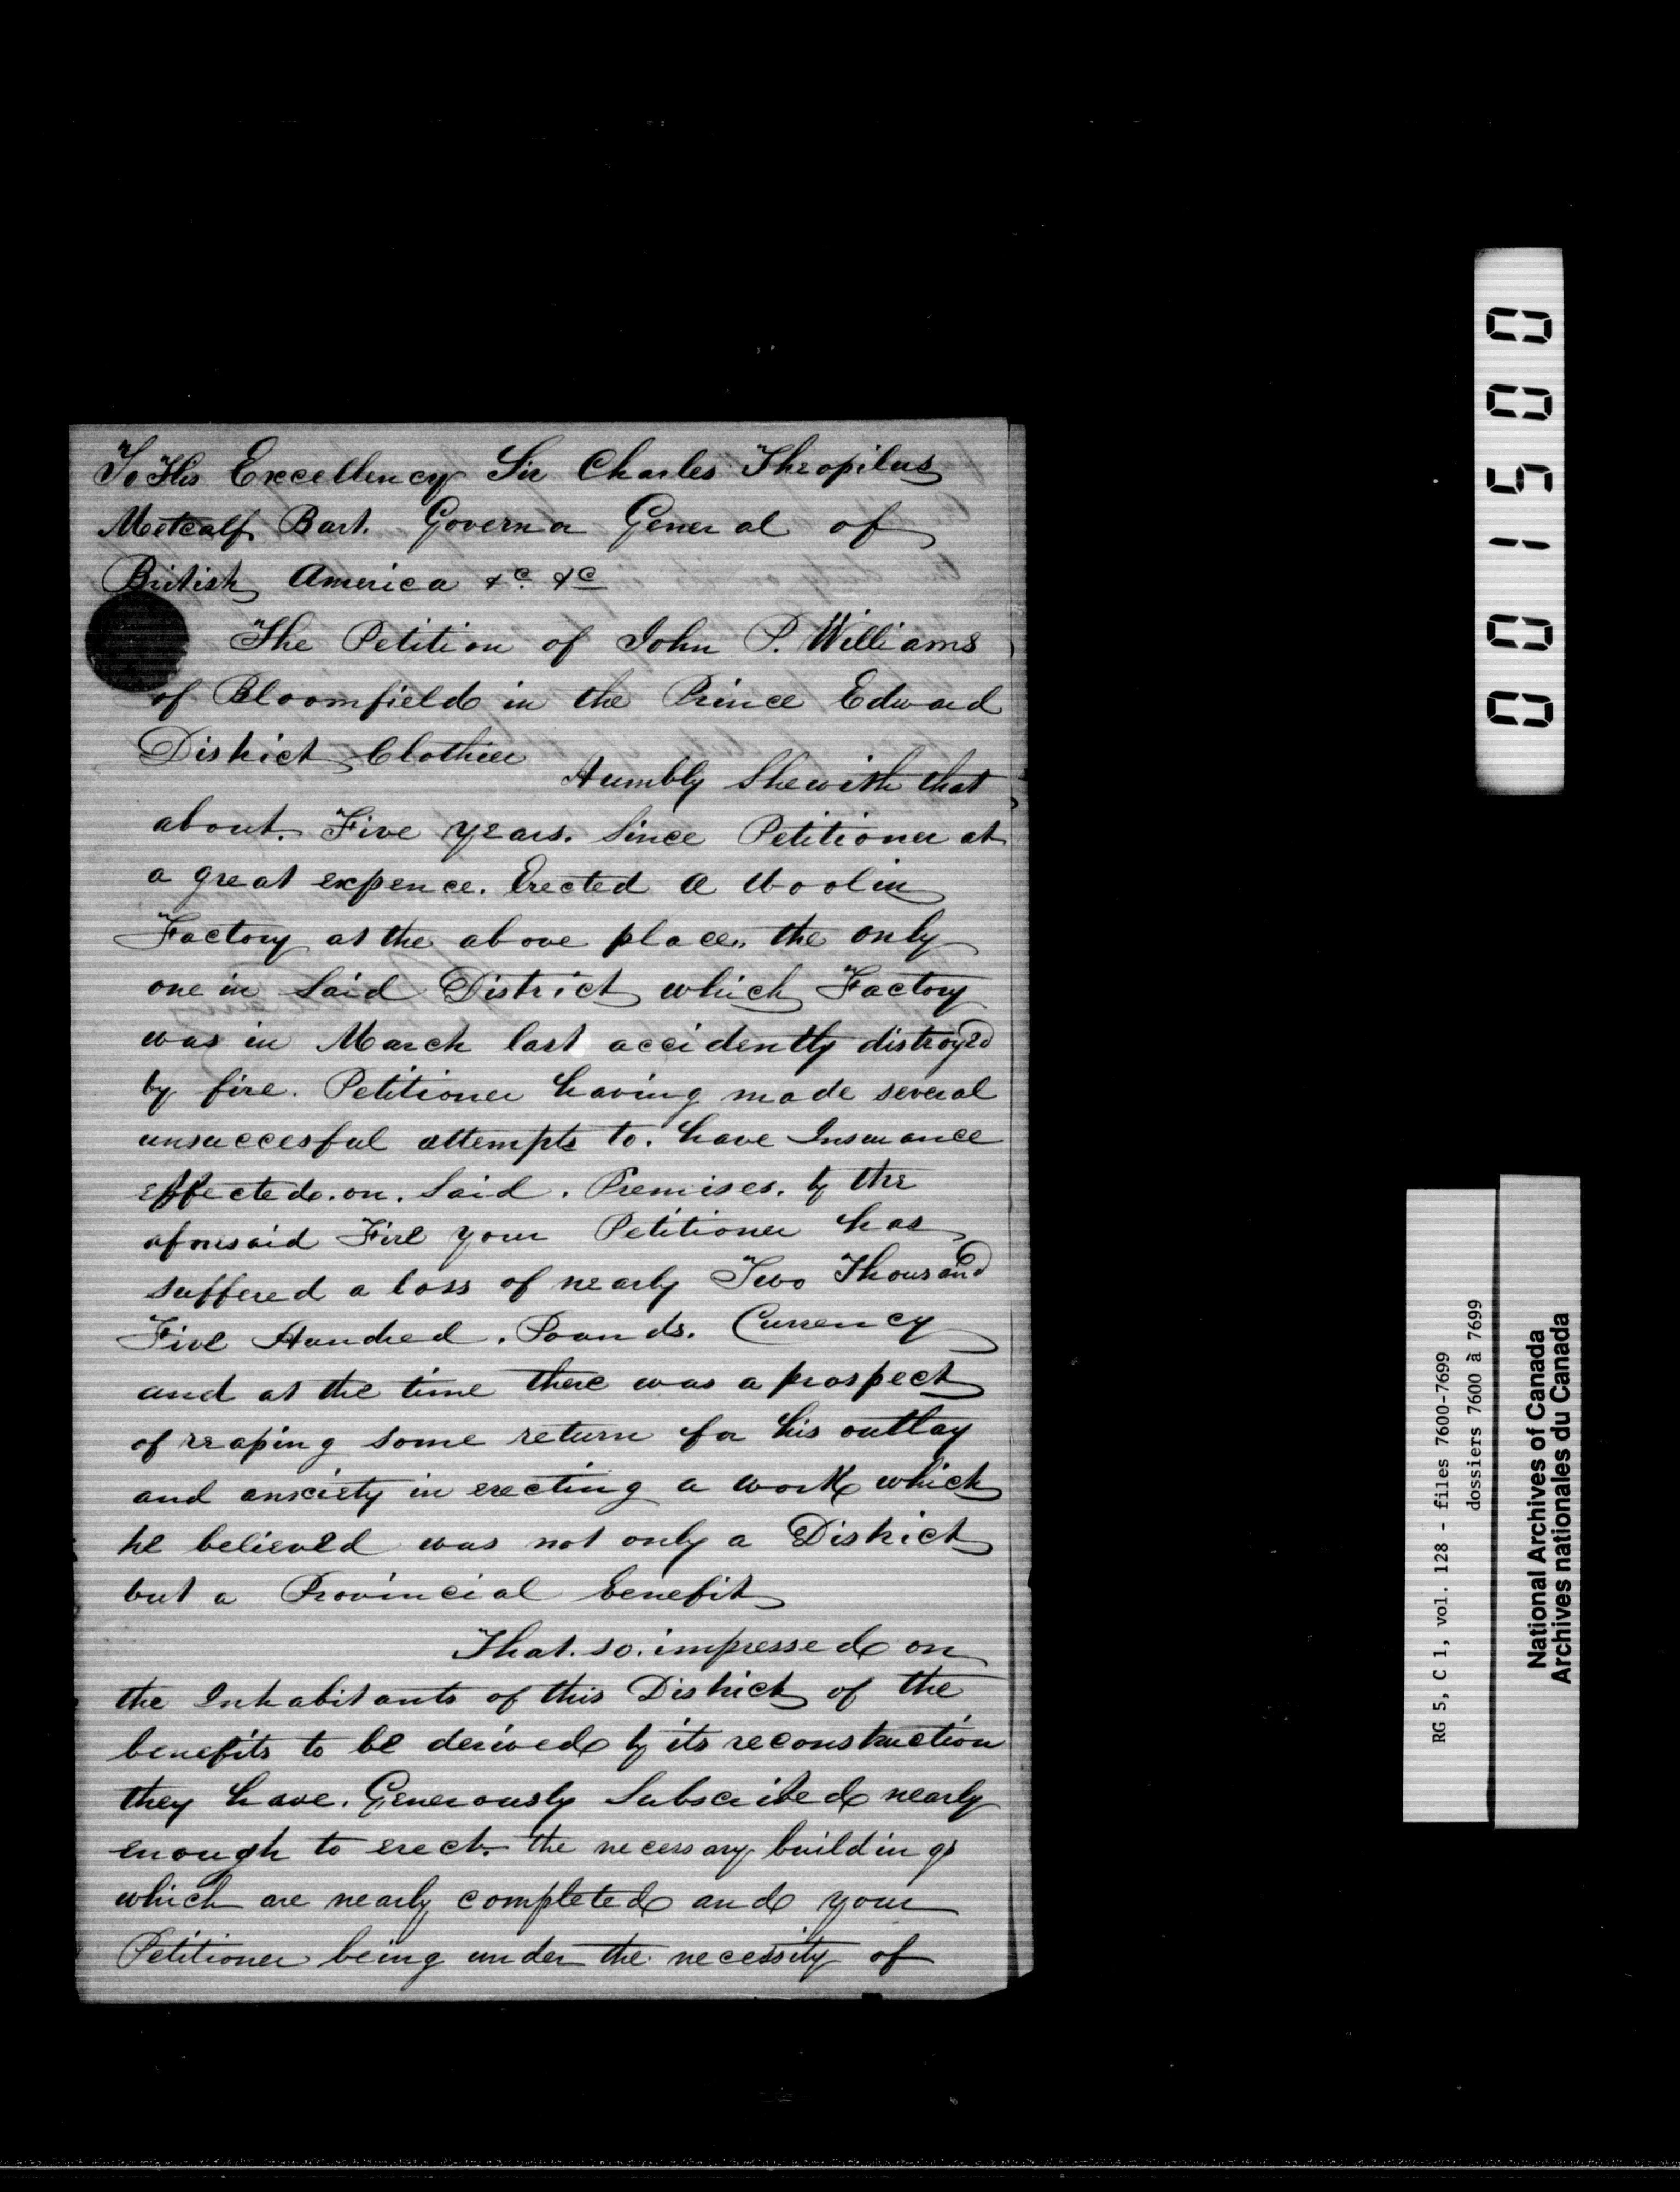 To His Excellency Sir Charles Theopilus
Metcalf Bart. Governor General of
British America &c. &c
The Petition of John P. Williams
of Bloomfield in the Prince Edward
District Clothier
Humbly Shewith that
about. Five years. Since Petitioner at
a great expence. Erected a Woolin
Factory at the above place. the only
one in Said District which Factory
was in March last accidently distroyed
by fire. Petitioner having made several
unsuccesful attempts to. have Insurance
effected. on. Said. Premises. by the
aforesaid Fire your Petitioner has
suffered a loss of nearly Two Thousand
Five Hundred. Pounds. Currency
and at the time there was a prospect
of reaping some return for his outlay
and anxiety in erecting a work which
he believed was not only a District
but a Provincial benefit
That. so. impressed on
the Inhabitants of this District of the
benefits to be derived by its reconstruction
they have. Generously Subscribed nearly
enough to erect. the necessary buildings
which are nearly completed and your
Petitioner being under the necessity of
001500
RG 5, C 1, vol. 128 - files 7600-7699
dossiers 7600 à 7699
National Archives of Canada
Archives nationales du Canada